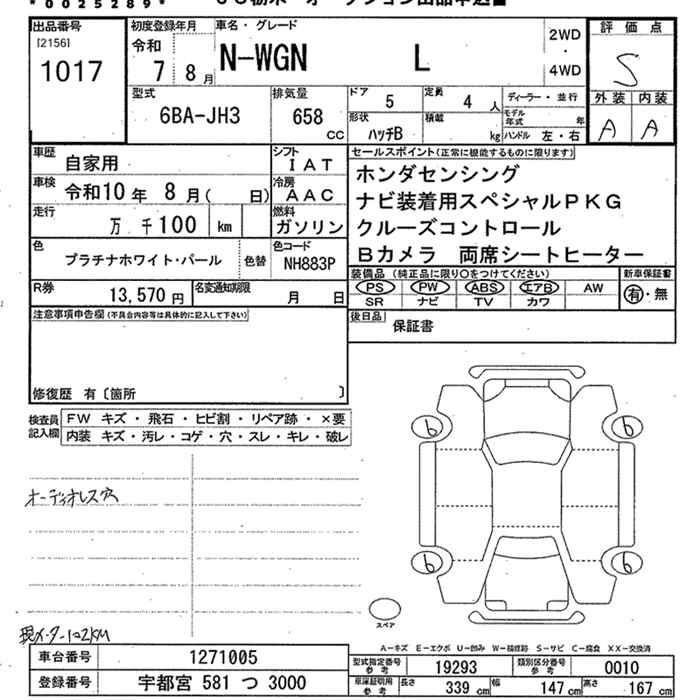 *0025289*
出品番号
[2156]
1017
初度登録年月
令和
7 8月
車名・グレード
N-WGN L
2WD
・
4WD
評価点
S
外装 内装
A A
型式
6BA-JH3
排気量
658
CC
ドア 5
定員 4 人
形状 ハッチB
積載 kg
ディーラー・並行
モデル年式 年
ハンドル 左・右
車歴 自家用
シフト
IAT
車検 令和10年 8月( 日)
冷房
AAC
走行 万 千100 km
燃料
ガソリン
色 プラチナホワイト・パール 色替
色コード
NH883P
R券 13,570円
名変通知期限 月 日
セールスポイント(正常に機能するものに限ります)
ホンダセンシング
ナビ装着用スペシャルPKG
クルーズコントロール
Bカメラ 両席シートヒーター
装備品 (純正品に限り○をつけてください)
PS PW ABS エアB AW
SR ナビ TV カワ
新車保証書
有・無
後日品
保証書
注意事項申告欄(不具合内容等は具体的に記入して下さい)
修復歴 有〔箇所 〕
検査員
記入欄
FW キズ・飛石・ヒビ割・リペア跡・×要
内装 キズ・汚レ・コゲ・穴・スレ・キレ・破レ
オーディオレス穴
現メーター102KM
6 6
6 6
スペア
A-キズ E-エクボ U-凹み W-補修跡 S-サビ C-腐食 XX-交換済
車台番号 1271005
登録番号 宇都宮 581 つ 3000
型式指定番号
参考
19293
類別区分番号
参考
0010
車庫証明用
参考
長さ 339 cm
幅 147 cm
高さ 167 cm